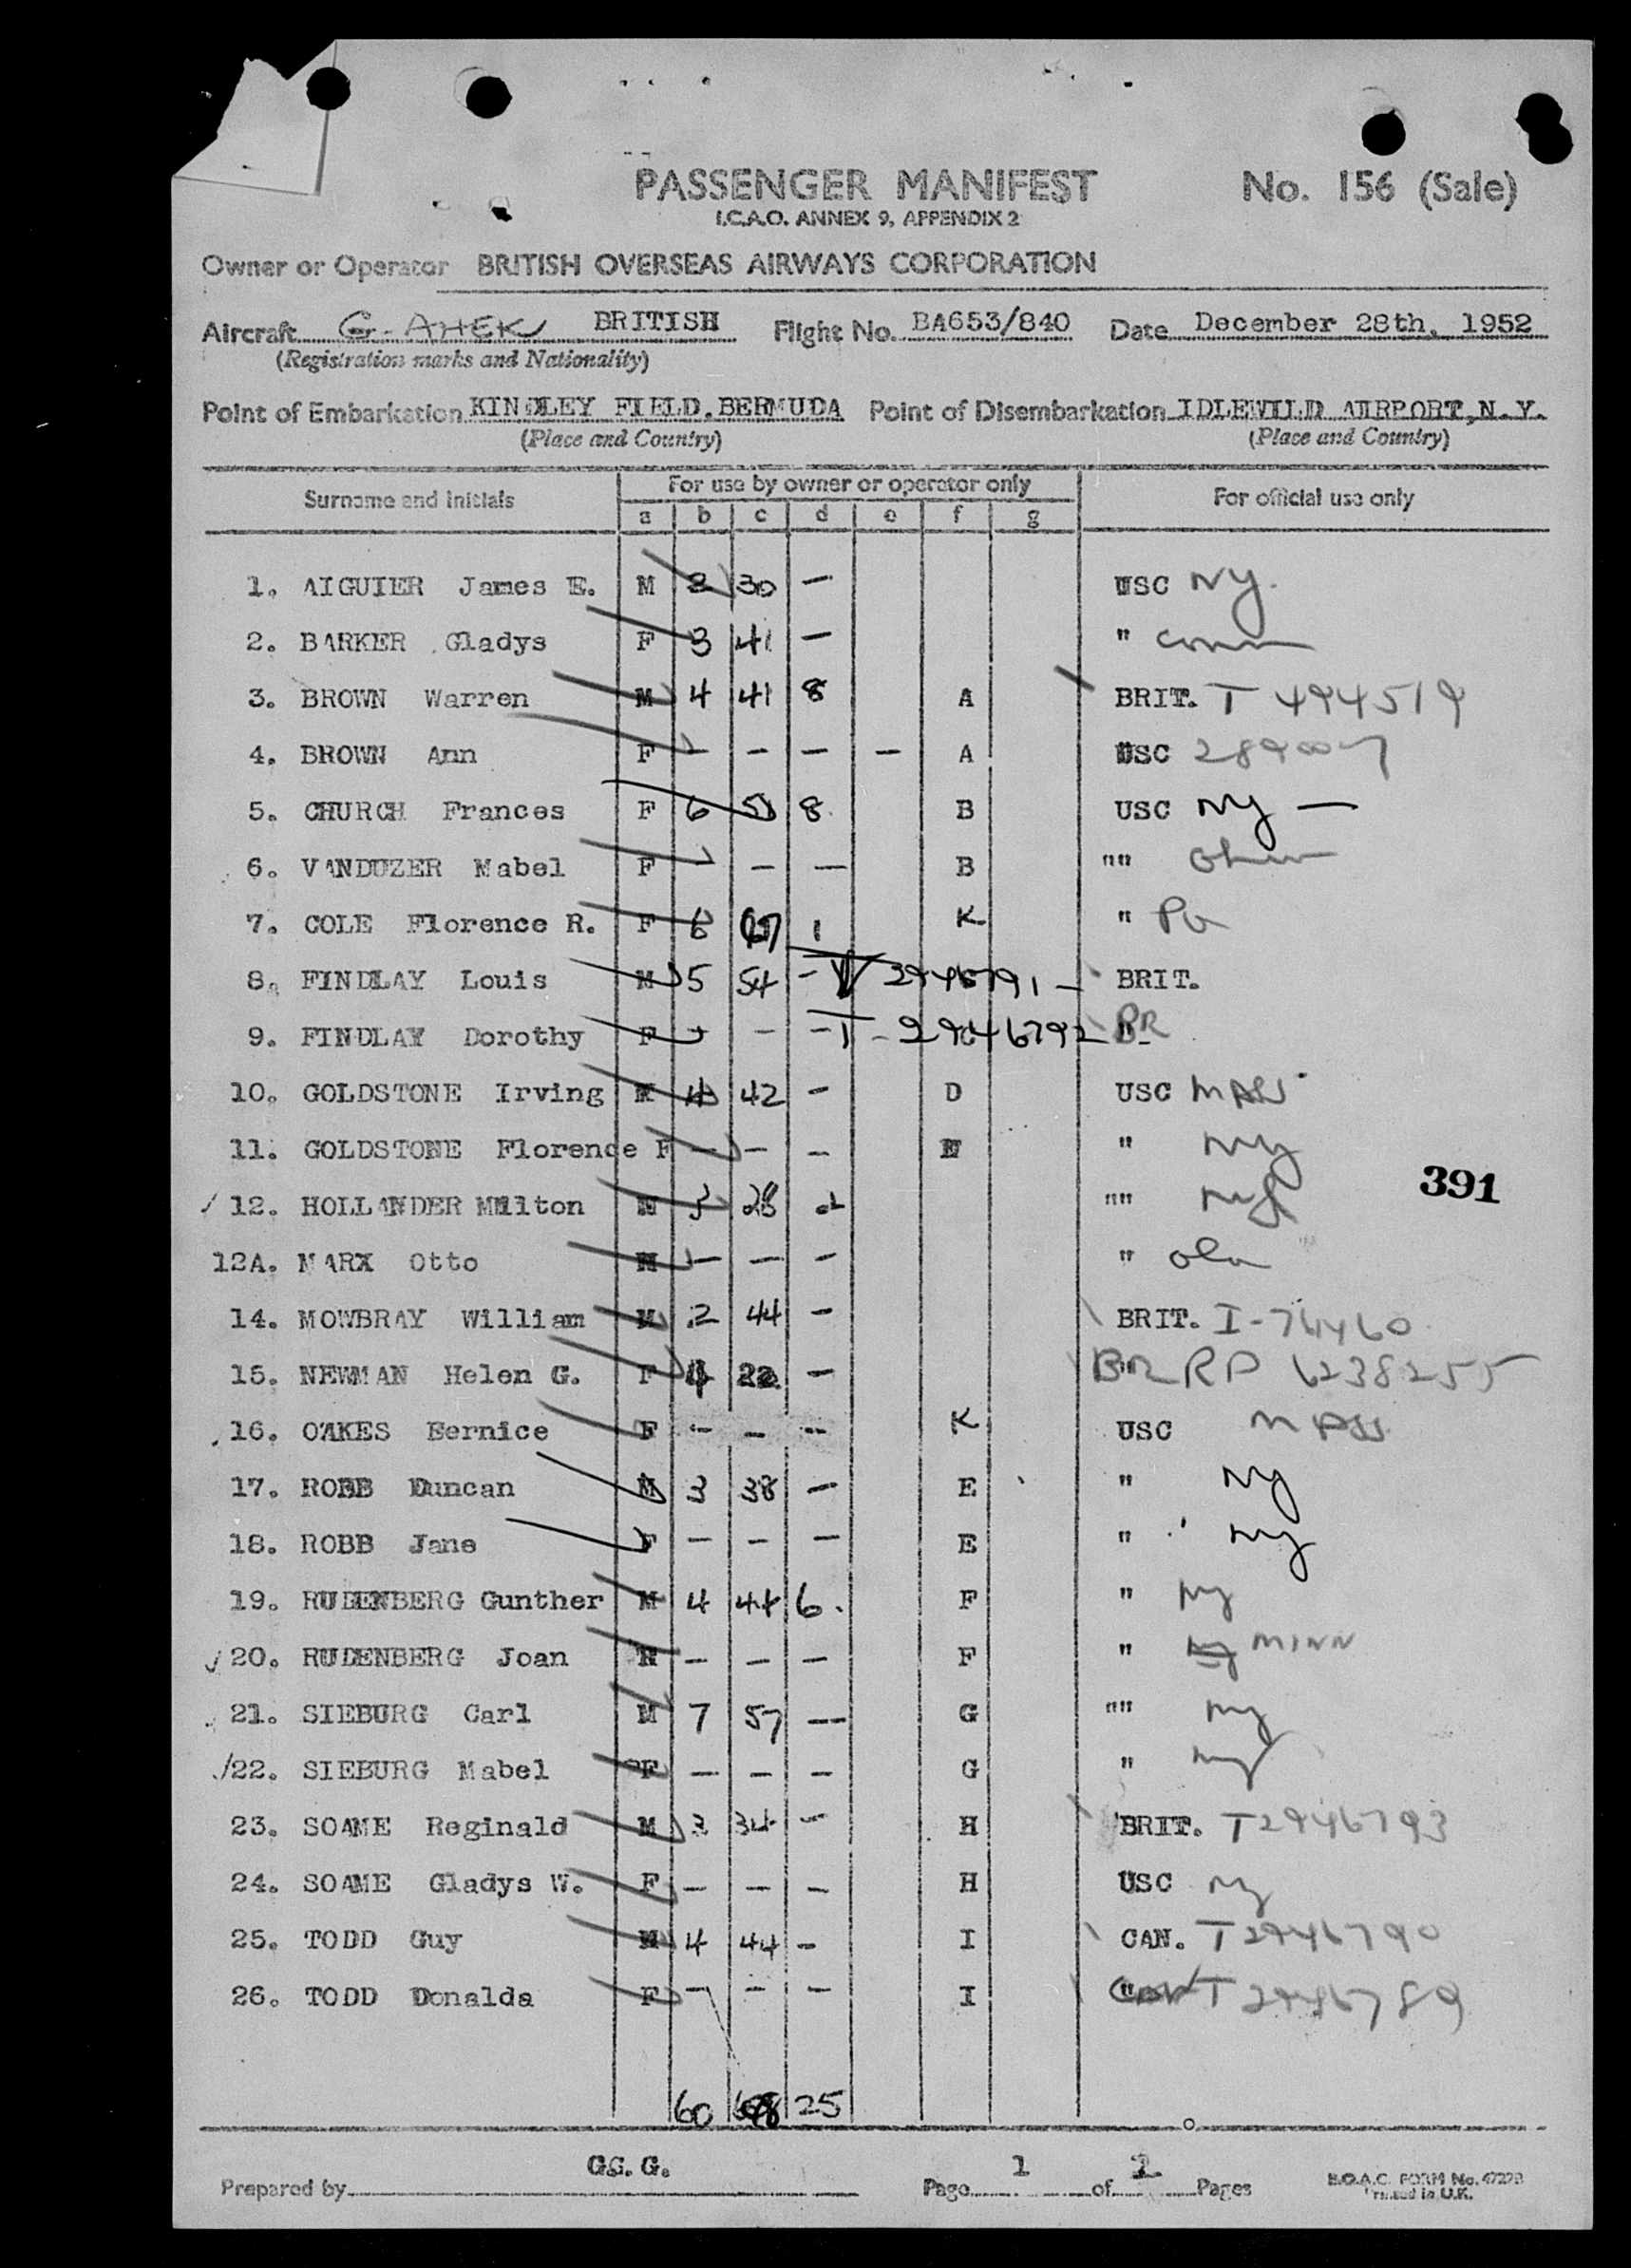 PASSENGER MANIFEST No. 156 (Sale)
I.C.A.O. ANNEX 9, APPENDIX 2
Owner or Operator BRITISH OVERSEAS AIRWAYS CORPORATION
Aircraft G-AHEK BRITISH Flight No. BA653/840 Date December 28th, 1952
(Registration marks and Nationality)
Point of Embarkation KINDLEY FIELD, BERMUDA Point of Disembarkation IDLEWILD AIRPORT, N.Y.
(Place and Country) (Place and Country)
Surname and Initials For use by owner or operator only For official use only
a b c d e f g
1. AIGUIER James E. M 2 30 — USC NY.
2. BARKER Gladys F 3 41 — " Conn
3. BROWN Warren M 4 41 8 A BRIT. T 494519
4. BROWN Ann F — — — — A USC 289007
5. CHURCH Frances F 6 51 8 B USC NY —
6. VANDUZER Mabel F — — — B "" Ohio
7. COLE Florence R. F 6 67 1 K " Pa
8. FINDLAY Louis M 5 54 - V 2946791 - BRIT.
9. FINDLAY Dorothy F - - - T - 2946792 " BR
10. GOLDSTONE Irving M 4 42 - D USC MASS
11. GOLDSTONE Florence F — — — " NY
12. HOLLANDER Milton M 3 28 2 "" NY
12A. MARX Otto M — — - "
14. MOWBRAY William M 2 44 - BRIT. I-76460
15. NEWMAN Helen G. F 4 22 — BR RP 6238255
16. OAKES Bernice F - - -- K USC MASS
17. ROBB Duncan M 3 38 — E " NY
18. ROBB Jane F — — — E " NY
19. RUDENBERG Gunther M 4 44 6. F " NY
20. RUDENBERG Joan F — — — F " NY MINN
21. SIEBURG Carl M 7 57 — G "" NY
22. SIEBURG Mabel F — — — G " NY
23. SOAME Reginald M 3 34 - H BRIT. T2946793
24. SOAME Gladys W. F — — — H USC NY
25. TODD Guy M 4 44 - I CAN. T2946790
26. TODD Donalda F - - - I " Can T2946789
391
60 698 25
Prepared by G.G. Page 1 of 2 Pages
B.O.A.C. FORM No. 4727B
Printed in U.K.